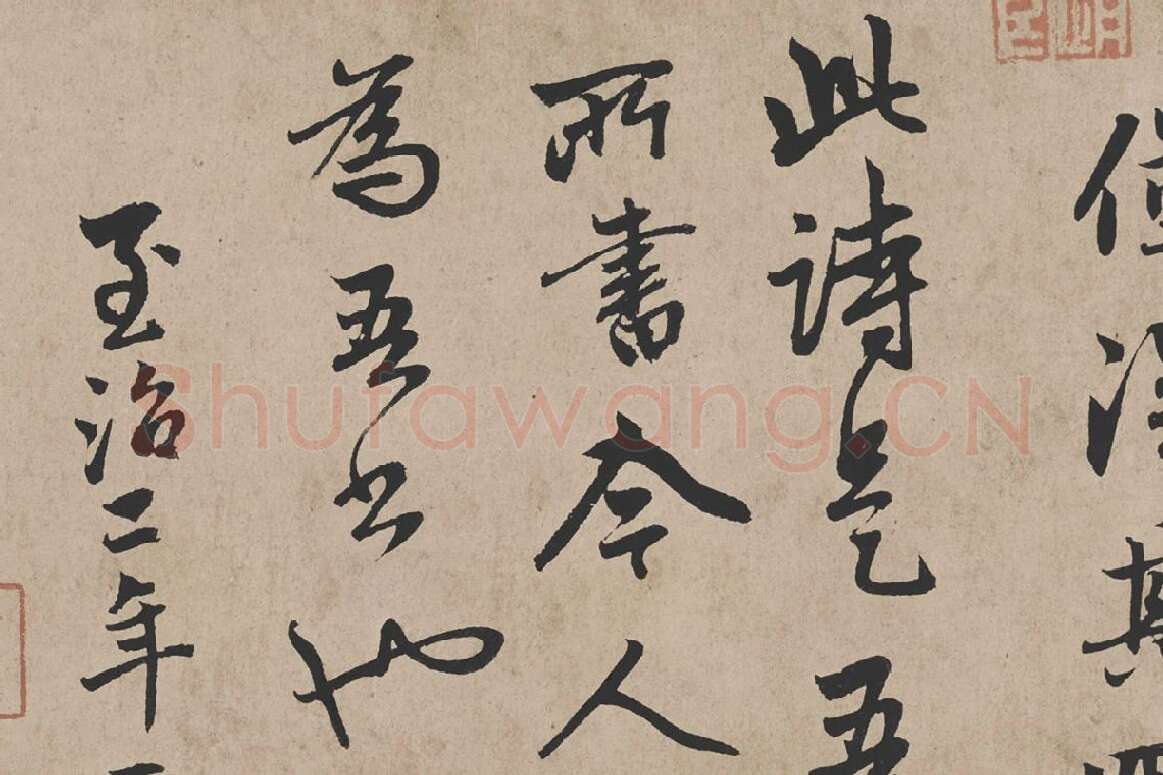 其
此詩是吾
所書今人
為吾書也
至治二年
Shufawang.CN